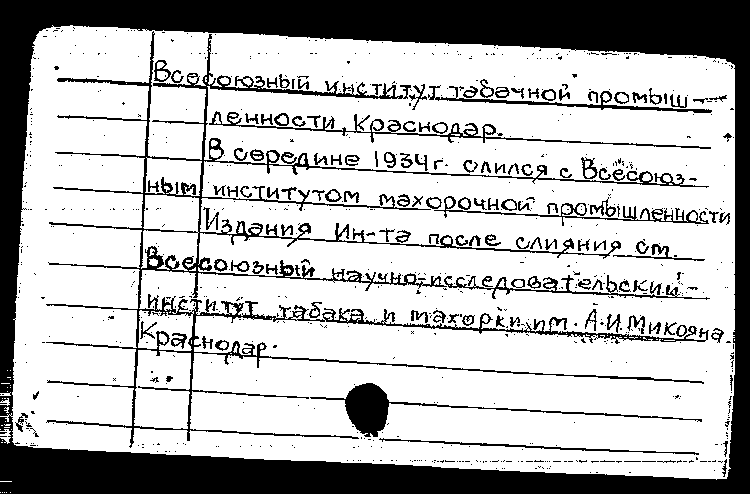 Всесоюзный институт табачной промыш-
ленности, Краснодар.
В середине 1934г. слился с Всесоюз-
ным институтом махорочной промышленности
Издания Ин-та после слияния см.
Всесоюзный научно-исследовательский
институт табака и махорки им. А.И Микояна.
Краснодар.